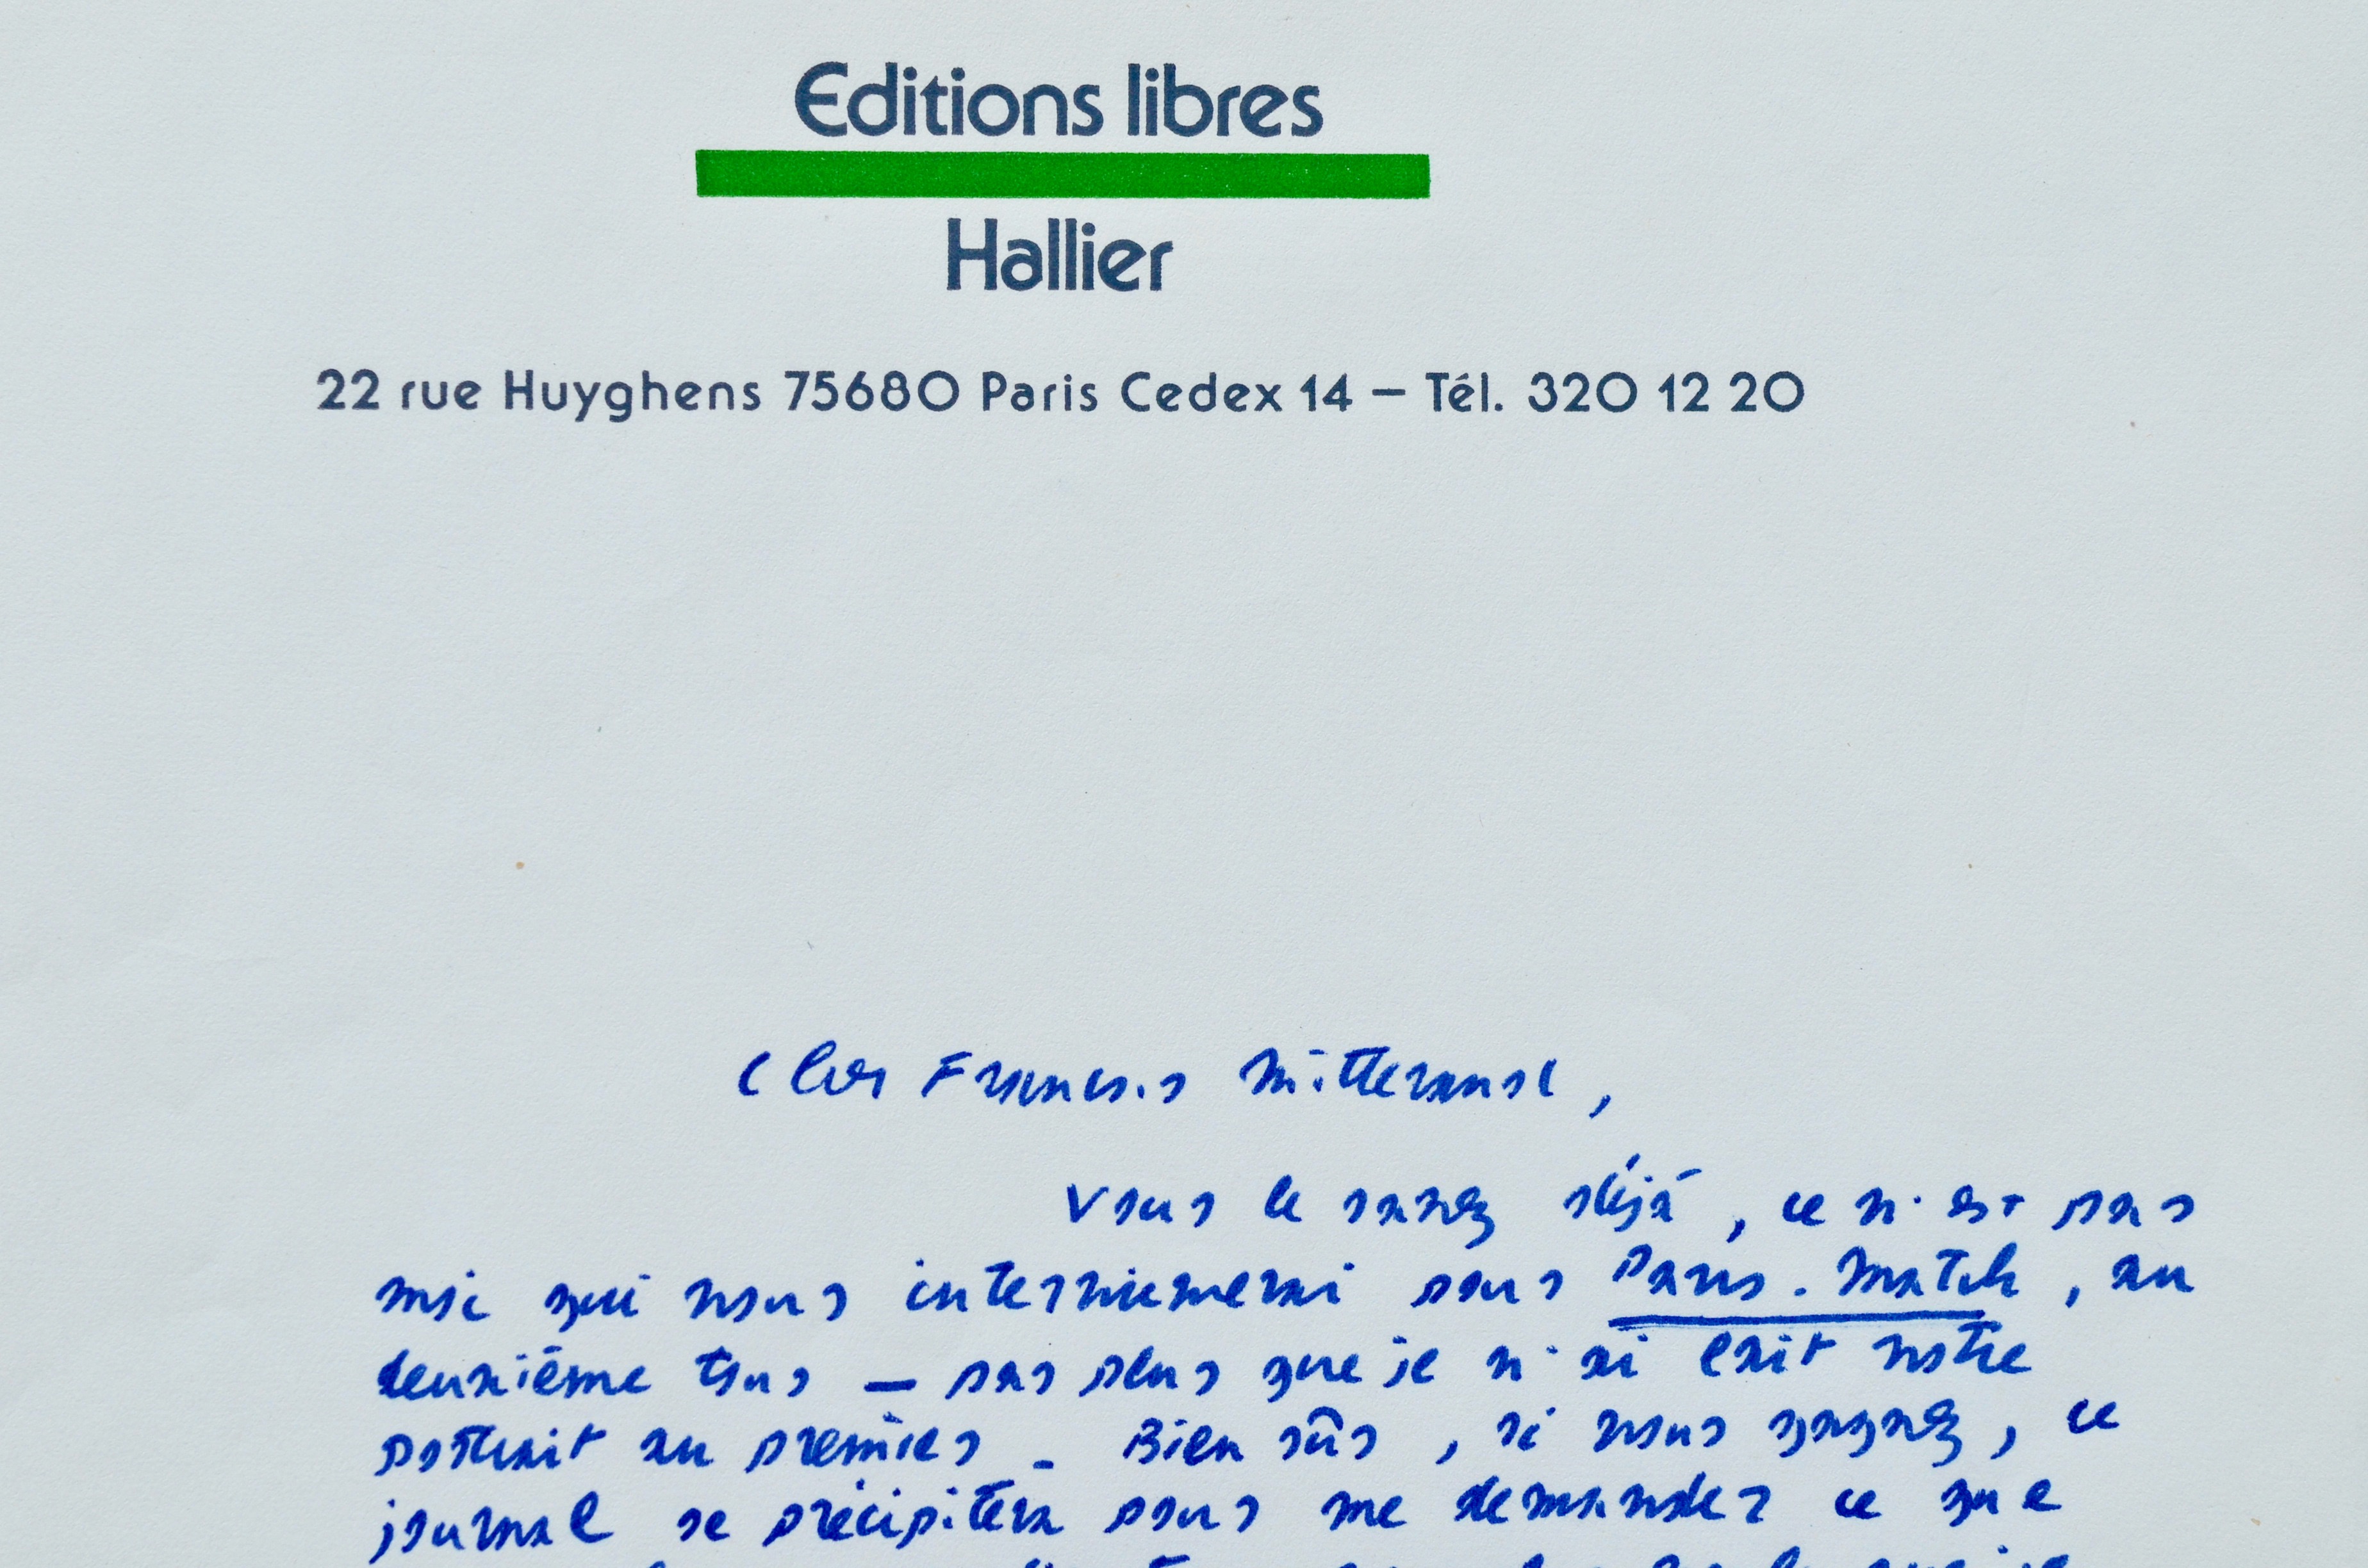 Editions libres
Hallier
22 rue Huyghens 75680 Paris Cedex 14 – Tél. 320 12 20
Cher François Mitterrand,
Vous le savez déjà, ce n'est pas
moi qui vous interviewerai pour Paris-Match, au
deuxième tour — pas plus que je n'ai écrit votre
portrait au premier – Bien sûr, si vous gagnez, ce
journal se précipitera pour me demander ce que